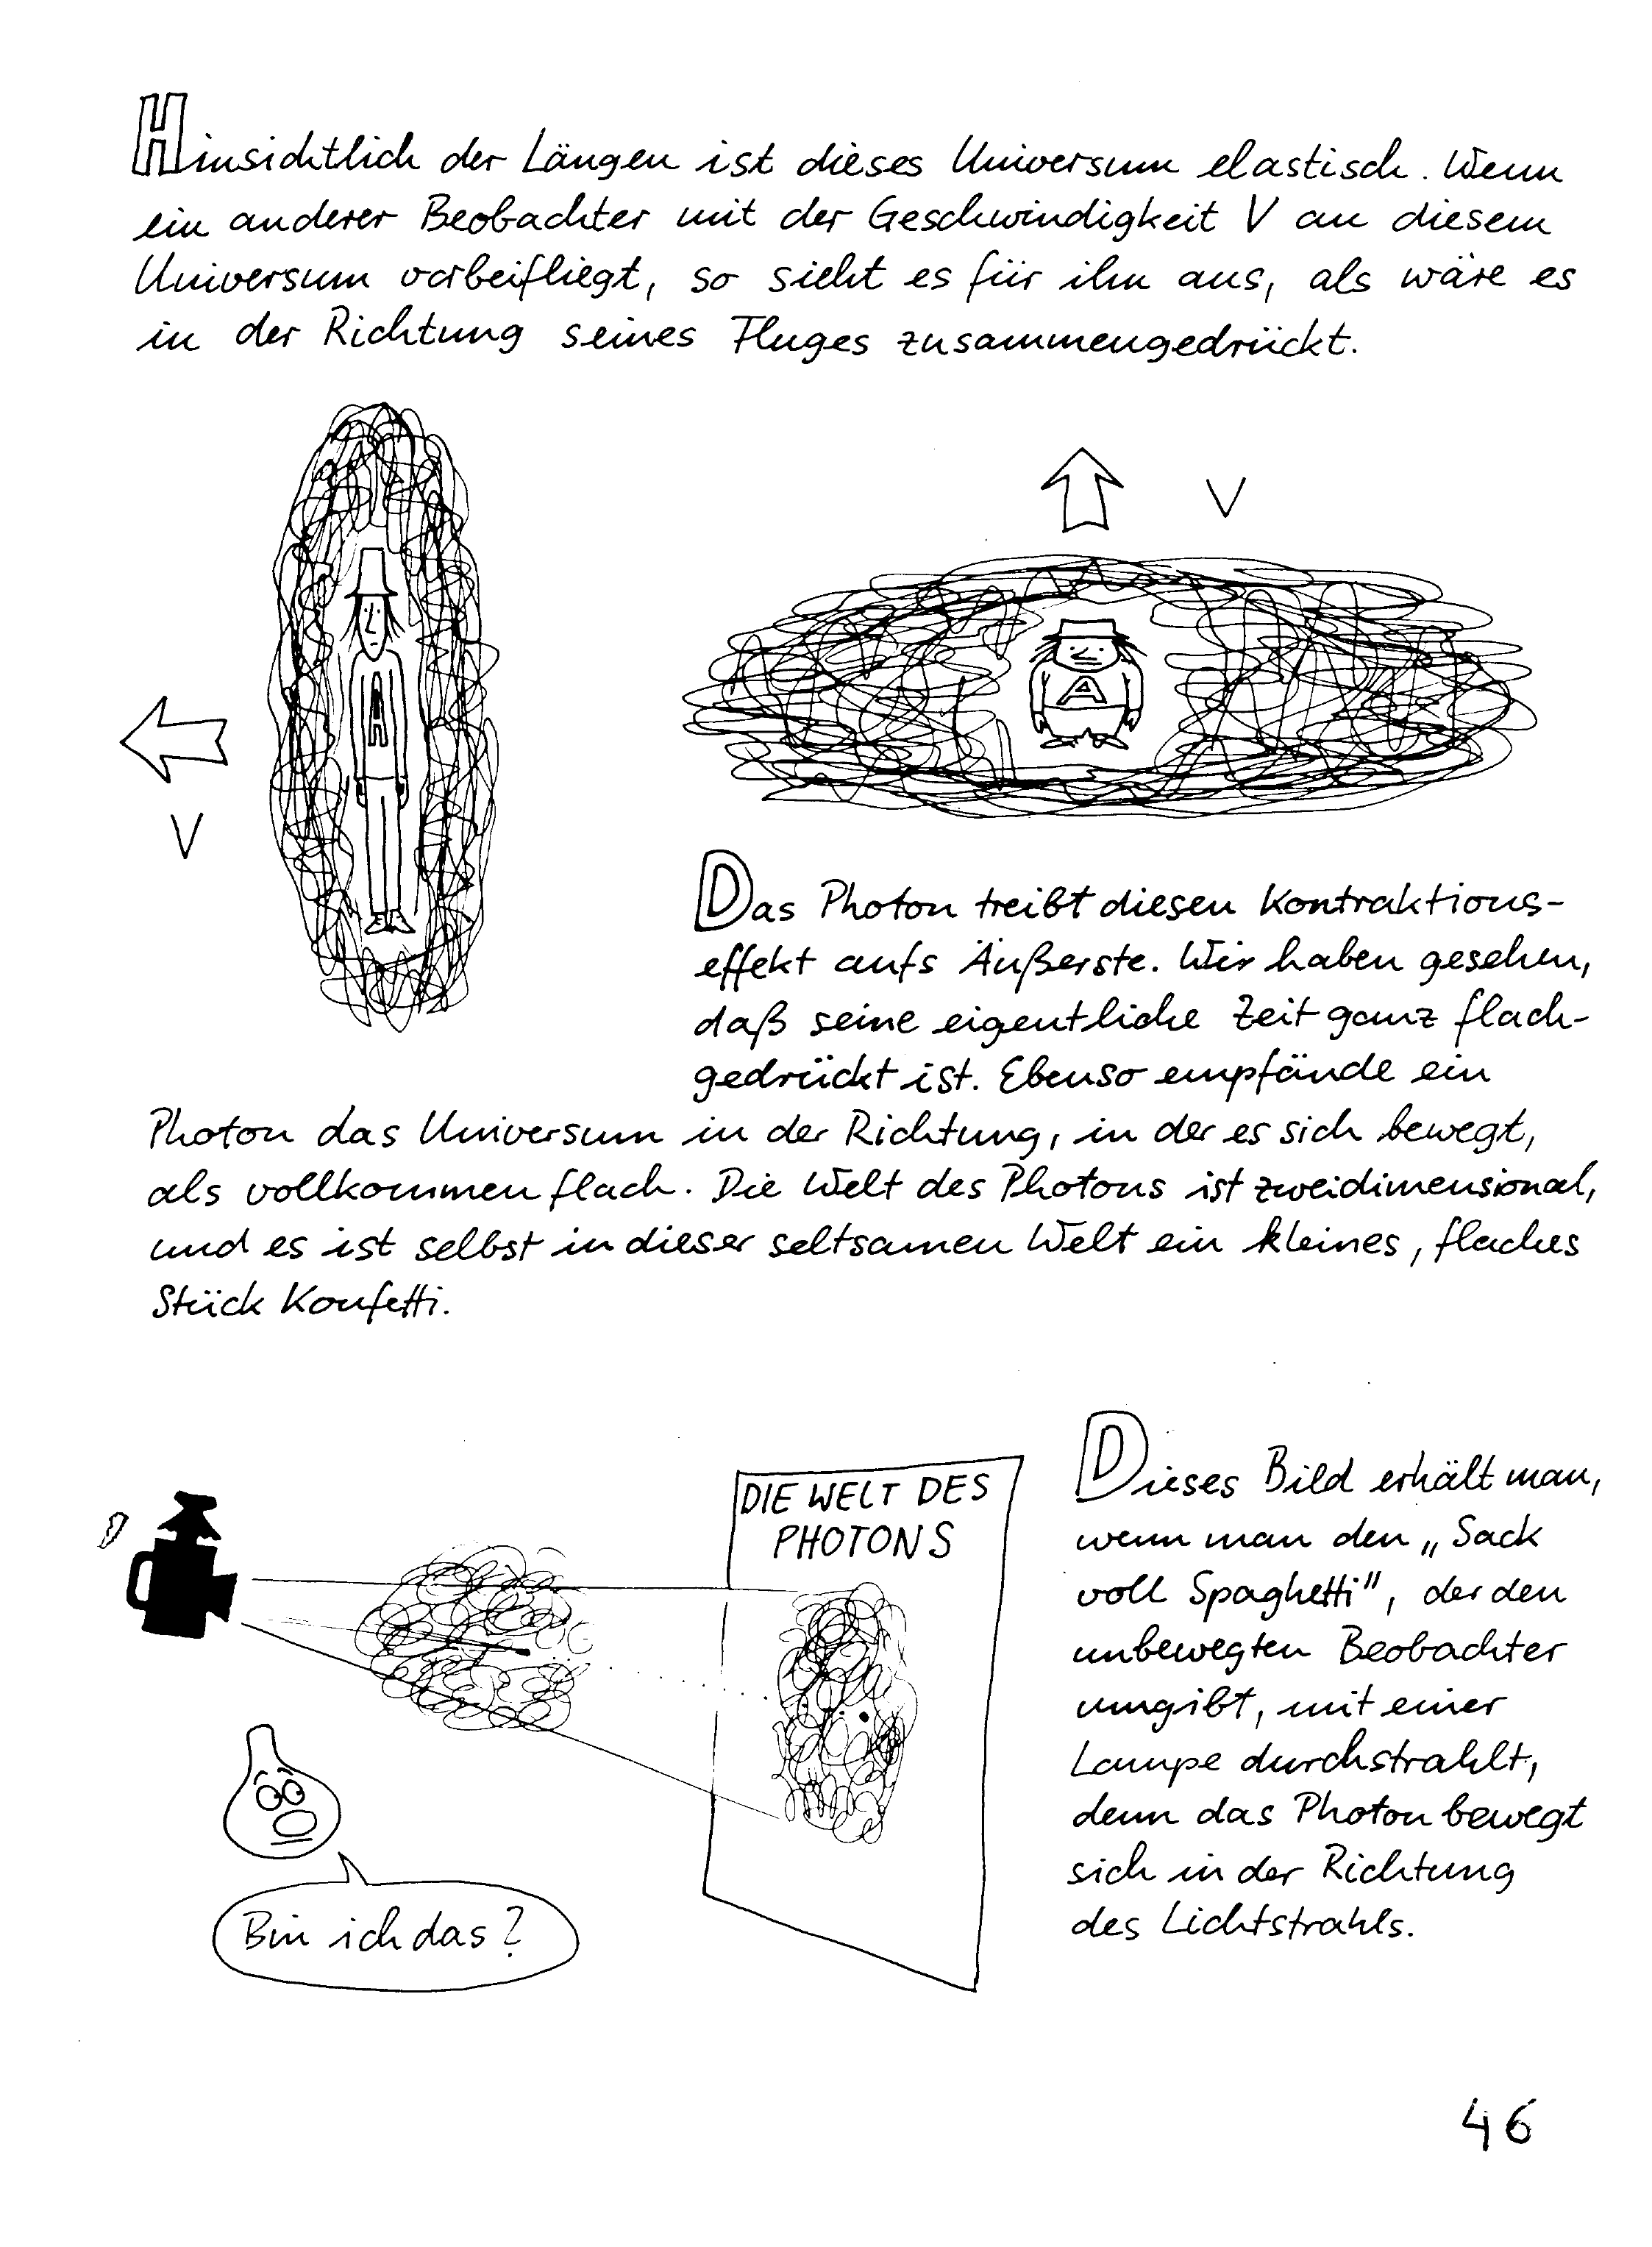 Hinsichtlich der Längen ist dieses Universum elastisch. Wenn
ein anderer Beobachter mit der Geschwindigkeit V an diesem
Universum vorbeifliegt, so sieht es für ihn aus, als wäre es
in der Richtung seines Fluges zusammengedrückt.
V
A
V
A
Das Photon treibt diesen Kontraktions-
effekt aufs Äußerste. Wir haben gesehen,
daß seine eigentliche Zeit ganz flach-
gedrückt ist. Ebenso empfände ein
Photon das Universum in der Richtung, in der es sich bewegt,
als vollkommen flach. Die Welt des Photons ist zweidimensional,
und es ist selbst in dieser seltsamen Welt ein kleines, flaches
Stück Konfetti.
DIE WELT DES
PHOTONS
Dieses Bild erhält man,
wenn man den „Sack
voll Spaghetti", der den
unbewegten Beobachter
umgibt, mit einer
Lampe durchstrahlt,
denn das Photon bewegt
sich in der Richtung
des Lichtstrahls.
Bin ich das?
46